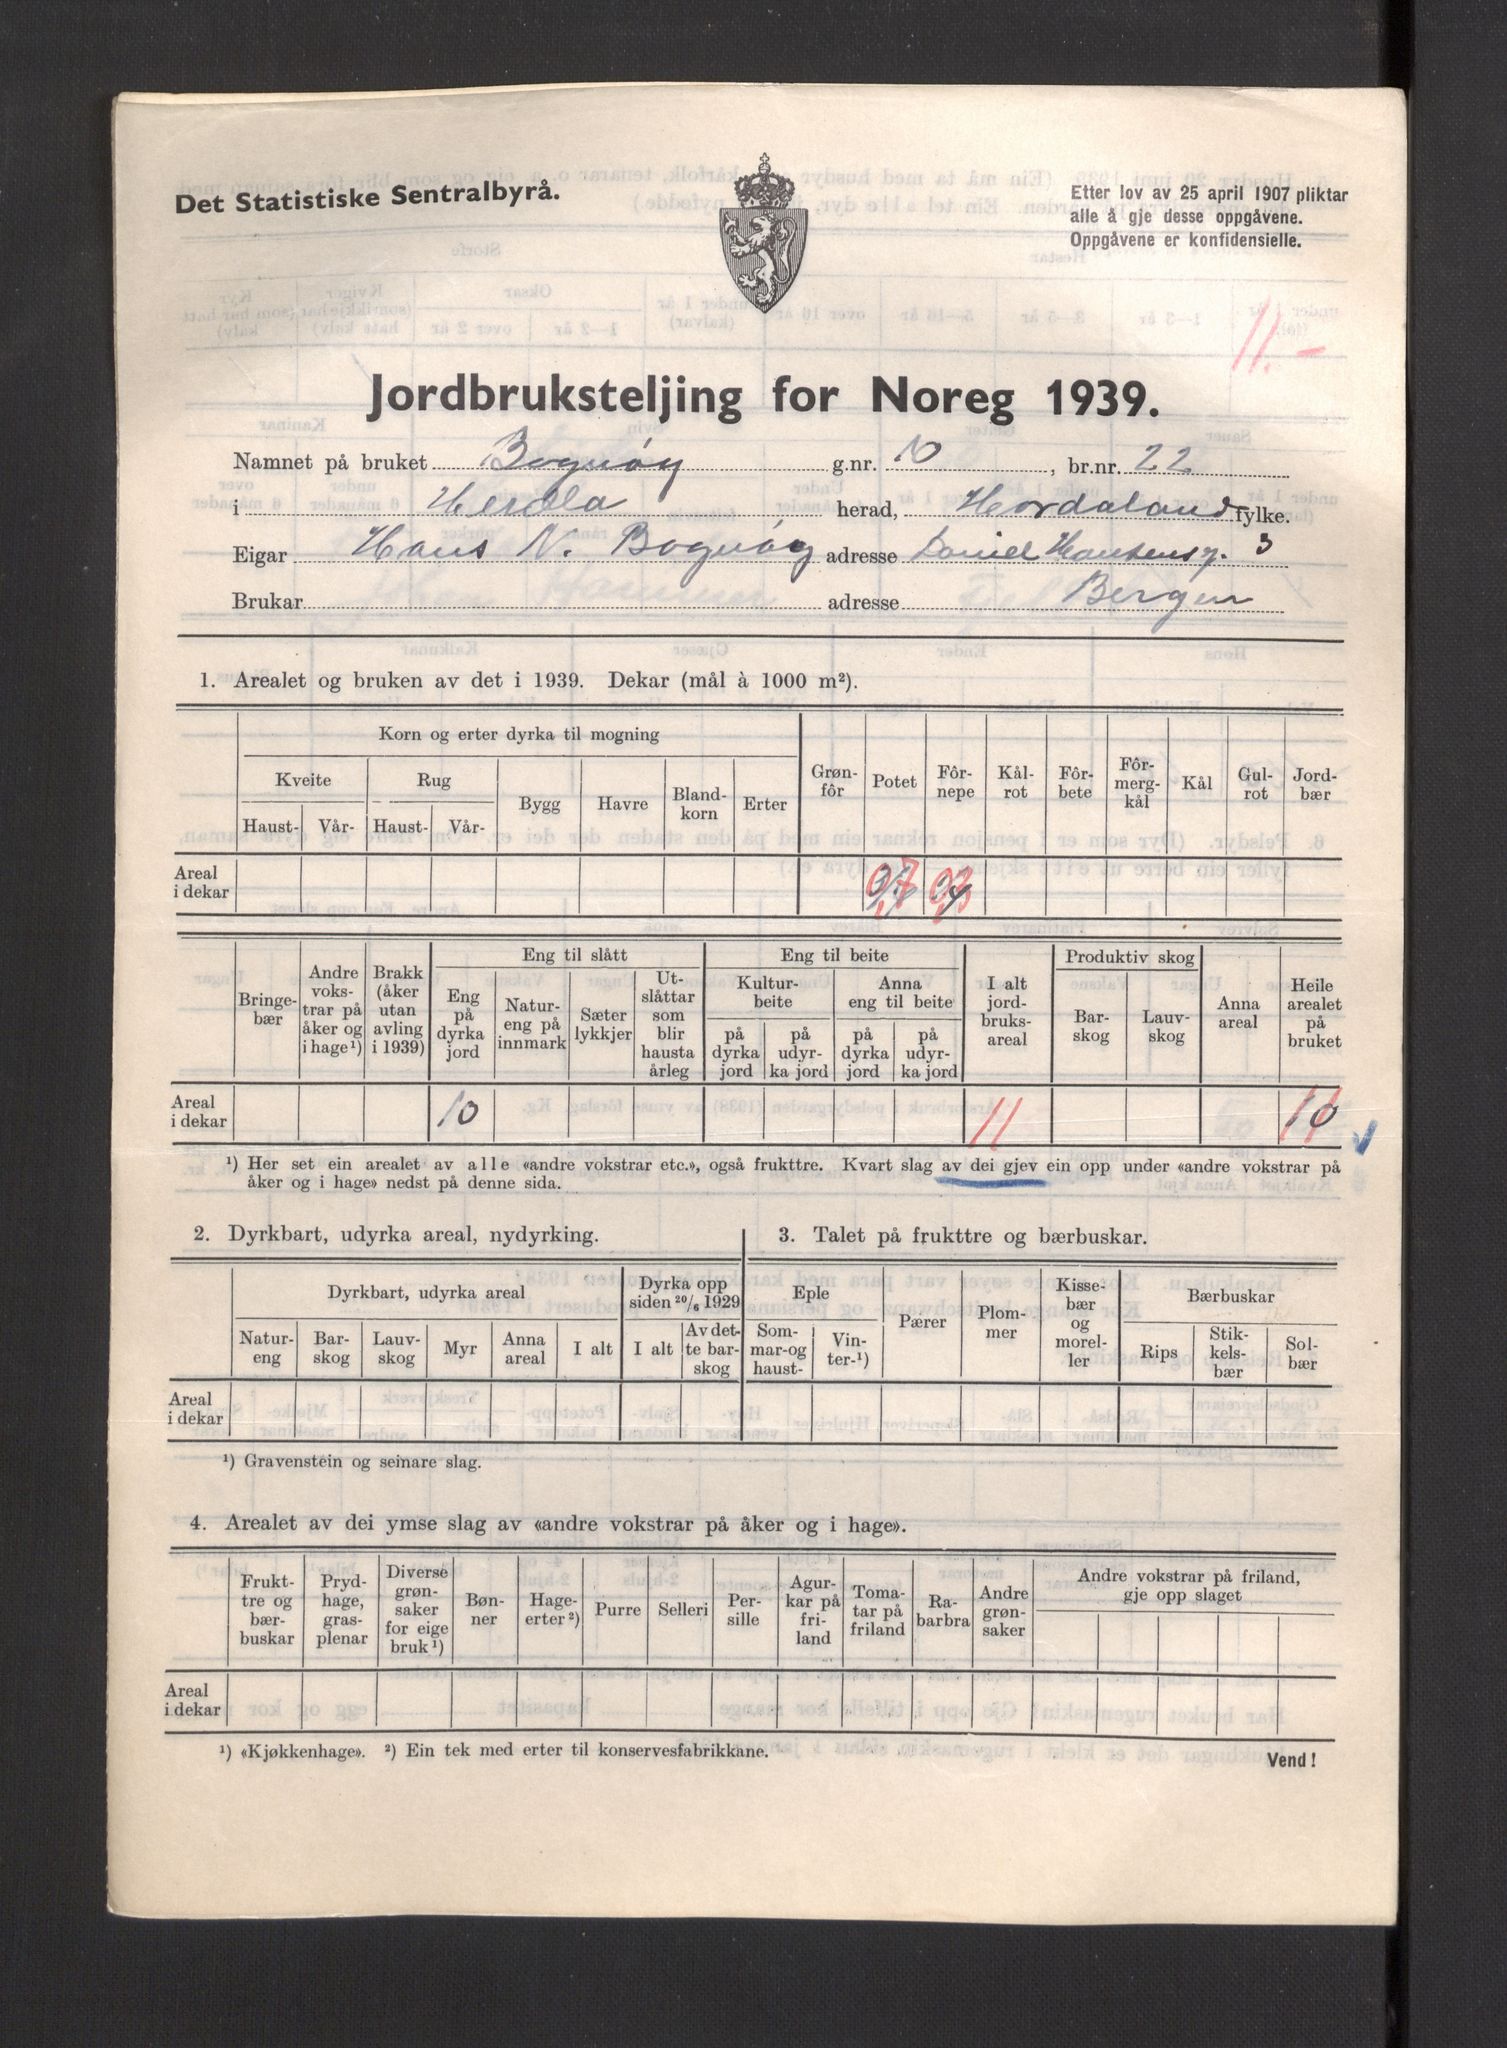 Det Statistiske Sentralbyrå.
Etter lov av 25 april 1907 pliktar
alle å gje desse oppgåvene.
Oppgåvene er konfidensielle.
11.-
Jordbruksteljing for Noreg 1939.
Namnet på bruket Bognøy g.nr. 10, br.nr. 22
i Herdla herad, Hordaland fylke.
Eigar Hans N. Bognøy adresse Daniel Hansensg. 3
Brukar adresse Bergen
1. Arealet og bruken av det i 1939. Dekar (mål à 1000 m²).
Korn og erter dyrka til mogning
Kveite Rug Bygg Havre Blandkorn Erter Grønfôr Potet Fôrnepe Kålrot Fôrbete Fôrmergkål Kål Gulrot Jordbær
Haust- Vår- Haust- Vår-
Areal i dekar 0,7 0,3
Eng til slått Eng til beite Produktiv skog
Bringebær Andre vokstrar på åker og i hage¹) Brakk (åker utan avling i 1939) Eng på dyrka jord Natureng på innmark Sæterlykkjer Utslåttar som blir hausta årleg Kulturbeite Anna eng til beite I alt jordbruksareal Barskog Lauvskog Anna areal Heile arealet på bruket
på dyrka jord på udyrka jord på dyrka jord på udyrka jord
Areal i dekar 10 11 10
¹) Her set ein arealet av alle «andre vokstrar etc.», også frukttre. Kvart slag av dei gjev ein opp under «andre vokstrar på
åker og i hage» nedst på denne sida.
2. Dyrkbart, udyrka areal, nydyrking.
3. Talet på frukttre og bærbuskar.
Dyrkbart, udyrka areal Dyrka opp siden 20/6 1929 Eple Pærer Plommer Kissebær og moreller Bærbuskar
Natureng Barskog Lauvskog Myr Anna areal I alt I alt Av dette barskog Sommar- og haust- Vinter-¹) Rips Stikkelsbær Solbær
Areal i dekar
¹) Gravenstein og seinare slag.
4. Arealet av dei ymse slag av «andre vokstrar på åker og i hage».
Frukttre og bærbuskar Prydhage, grasplenar Diverse grønsaker for eige bruk¹) Bønner Hageerter²) Purre Selleri Persille Agurkar på friland Tomatar på friland Rabarbra Andre grønsaker Andre vokstrar på friland, gje opp slaget
Areal i dekar
¹) «Kjøkkenhage». ²) Ein tek med erter til konservesfabrikkane.
Vend!